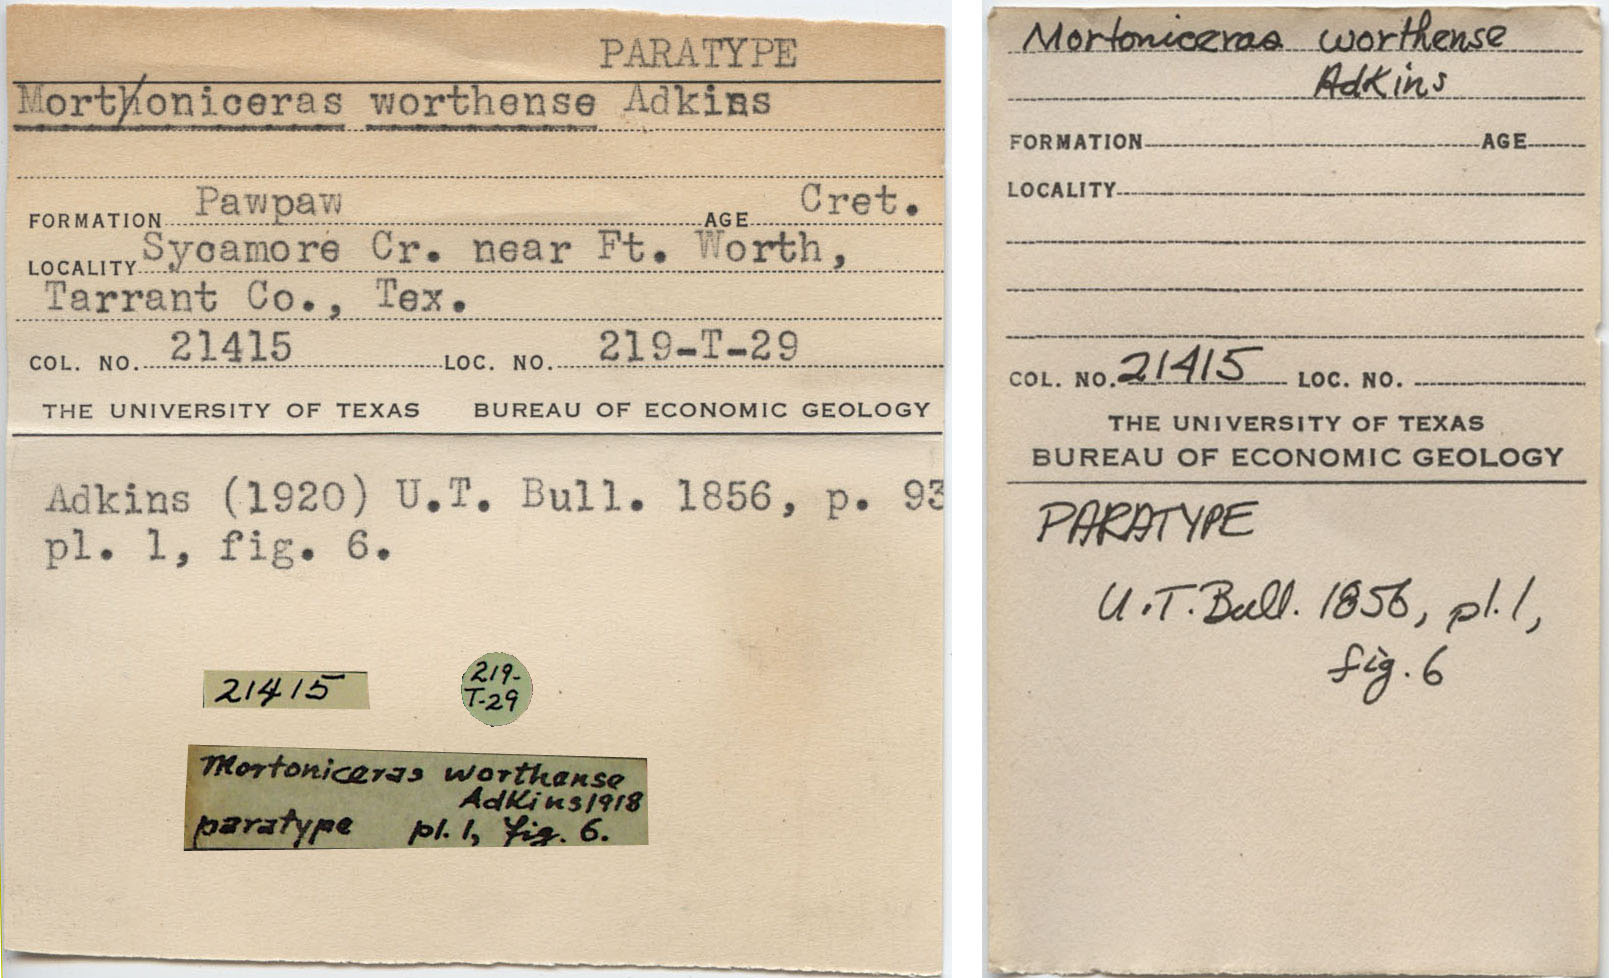 PARATYPE
Morthoniceras worthense Adkins
FORMATION Pawpaw AGE Cret.
LOCALITY Sycamore Cr. near Ft. Worth,
Tarrant Co., Tex.
COL. NO. 21415 LOC. NO. 219-T-29
THE UNIVERSITY OF TEXAS BUREAU OF ECONOMIC GEOLOGY
Adkins (1920) U.T. Bull. 1856, p. 93
pl. 1, fig. 6.
21415
219-
T-29
Mortoniceras worthense
Adkins 1918
paratype pl. 1, fig. 6.
Mortoniceras worthense
Adkins
FORMATION AGE
LOCALITY
COL. NO. 21415 LOC. NO.
THE UNIVERSITY OF TEXAS
BUREAU OF ECONOMIC GEOLOGY
PARATYPE
U.T. Bull. 1856, pl. 1,
fig. 6